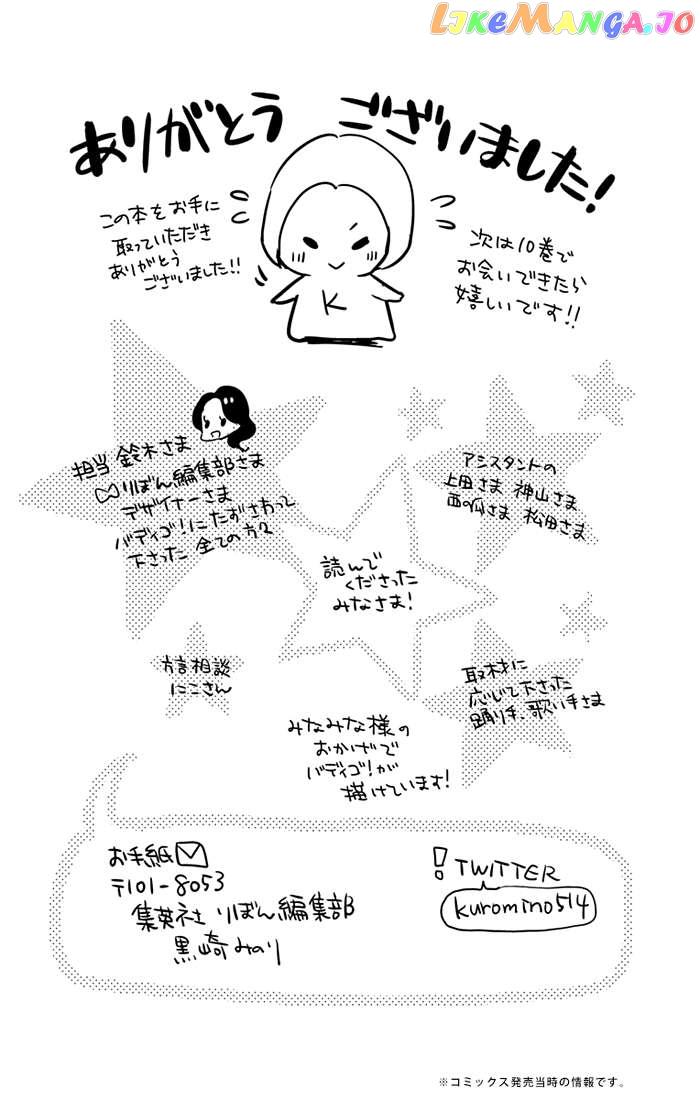 LIKEMANGA.IO
ありがとう ございました!
この本をお手に
取っていただき
ありがとう
ございました!!
次は10巻で
お会いできたら
嬉しいです!!
K
担当 鈴木さま
りぼん編集部さま
デザイナーさま
バディゴ!にたずさわって
下さった 全ての方々
アシスタントの
上田さま 神山さま
西の瓜さま 松田さま
読んで
くださった
みなさま!
方言相談
にこさん
取材に
応じて下さった
踊り手、歌い手さま
みなみな様の
おかげで
バディゴ!が
描けています!
お手紙
〒101-8053
集英社 りぼん編集部
黒崎みのり
! TWITTER
kuromino514
※コミックス発売当時の情報です。